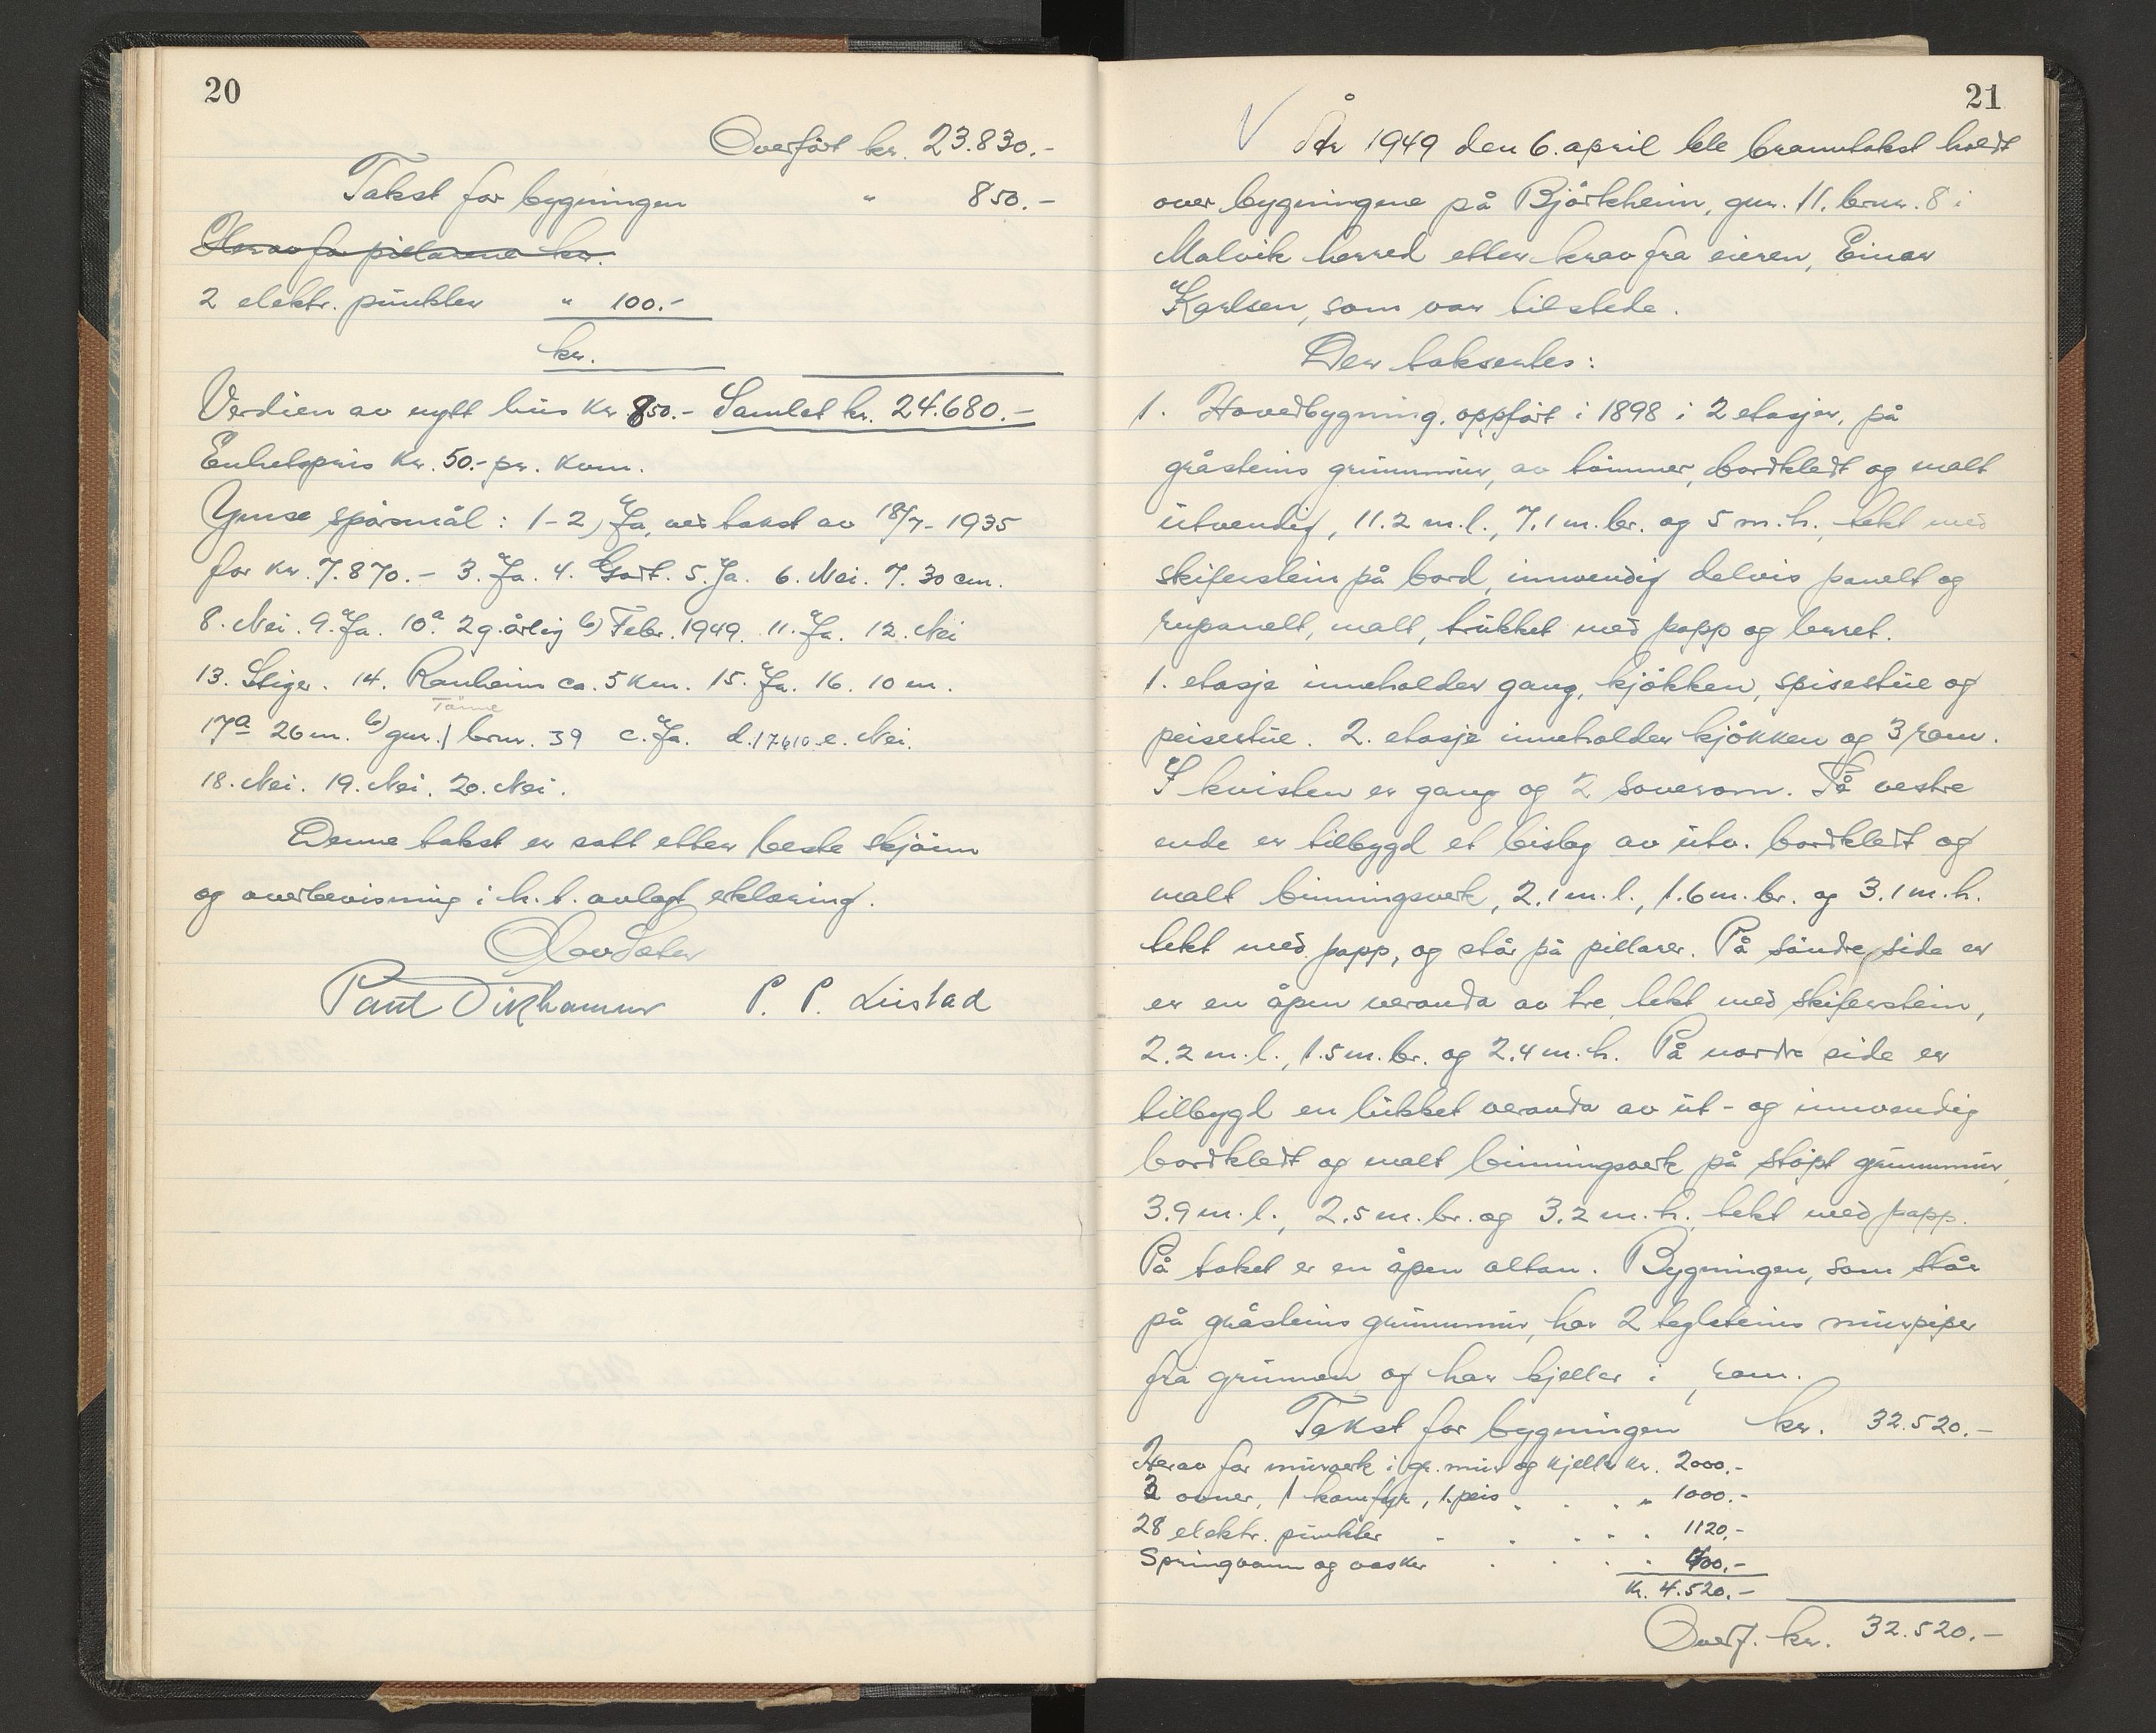 20
Overført kr. 23.830.-
Takst for bygningen " 850.-
Herav for pilarene kr.
2 elektr. punkter " 100.-
kr.
Verdien av nytt hus kr. 850.- Samlet kr. 24.680.-
Enhetspris kr. 50.- pr. kvm.
Ymse spørsmål: 1-2) Ja, ved takst av 18/7-1935
for kr. 7.870.- 3. Ja. 4. Godt. 5. Ja. 6. Nei. 7. 30 cm.
8. Nei. 9. Ja. 10a. 2 g. årlig b) Febr. 1949. 11. Ja. 12. Nei
13. Stiger. 14. Ranheim ca. 5 km. 15. Ja. 16. 10 m.
17a 26 m. b) gnr. 1 brnr. 39 c. Ja. d. 17610 e. Nei.
18. Nei. 19. Nei. 20. Nei.
Denne takst er satt etter beste skjønn
og overbevisning i h.t. avlagt erklæring.
P. P. Lüstad
21
År 1949 den 6. april ble branntakst holdt
over bygningene på Björkheim, gnr. 11. brnr. 8 i
Malvik herred etter krav fra eieren, Einar
Karlsen, som var tilstede.
Der taksertes:
1. Hovedbygning, oppført i 1898 i 2 etasjer, på
gråsteins grunnmur, av tømmer, bordkledt og malt
utvendig, 11.2 m.l., 7.1 m.br. og 5 m.h., tekt med
skiferstein på bord, innvendig delvis panelt og
rupanelt, malt, trukket med papp og lerret.
1. etasje inneholder gang, kjøkken, spisestue og
peisestue. 2. etasje inneholder kjøkken og 3 rom.
I kvisten er gang og 2 soverom. På vestre
ende er tilbygd et bislag av utv. bordkledt og
malt binningsverk, 2.1 m.l., 1.6 m.br. og 3.1 m.h.
tekt med papp, og står på pillarer. På søndre side er
er en åpen veranda av tre, tekt med skiferstein,
2.2 m.l., 1.5 m.br. og 2.4 m.h. På nordre side er
tilbygd en lukket veranda av ut- og innvendig
bordkledt og malt binningsverk på støpt grunnmur,
3.9 m.l., 2.5 m.br. og 3.2 m.h., tekt med papp.
På taket er en åpen altan. Bygningen, som står
på gråsteins grunnmur, har 2 teglsteins murpiper
fra grunnen og har kjeller i rom.
Takst for bygningen kr. 32.520.-
Herav for murverk i gr. mur og kjeller kr. 2000.-
3 ovner, 1 komfyr, 1 peis " 1000.-
28 elektr. punkter " 1120.-
Springvann og vasker " 400.-
Kr. 4.520.-
Overf. kr. 32.520.-